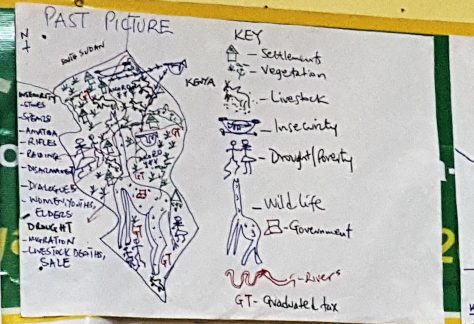 PAST PICTURE
N
SUDAN
KENYA
INSECURITY
- STONES
- SPEARS
- RIFLES
- RAIDING
- DISARMAMENT
- DIALOGUES
- WOMEN/YOUTHS,
ELDERS
DROUGHT
- MIGRATION
- LIVESTOCK DEATHS,
SALE
GT
GT
GT
GT
KEY
- Settlements
- Vegetation
- Livestock
- Insecurity
- Drought/Poverty
- Wild life
- Government
- Rivers
GT - Graduated tax
2